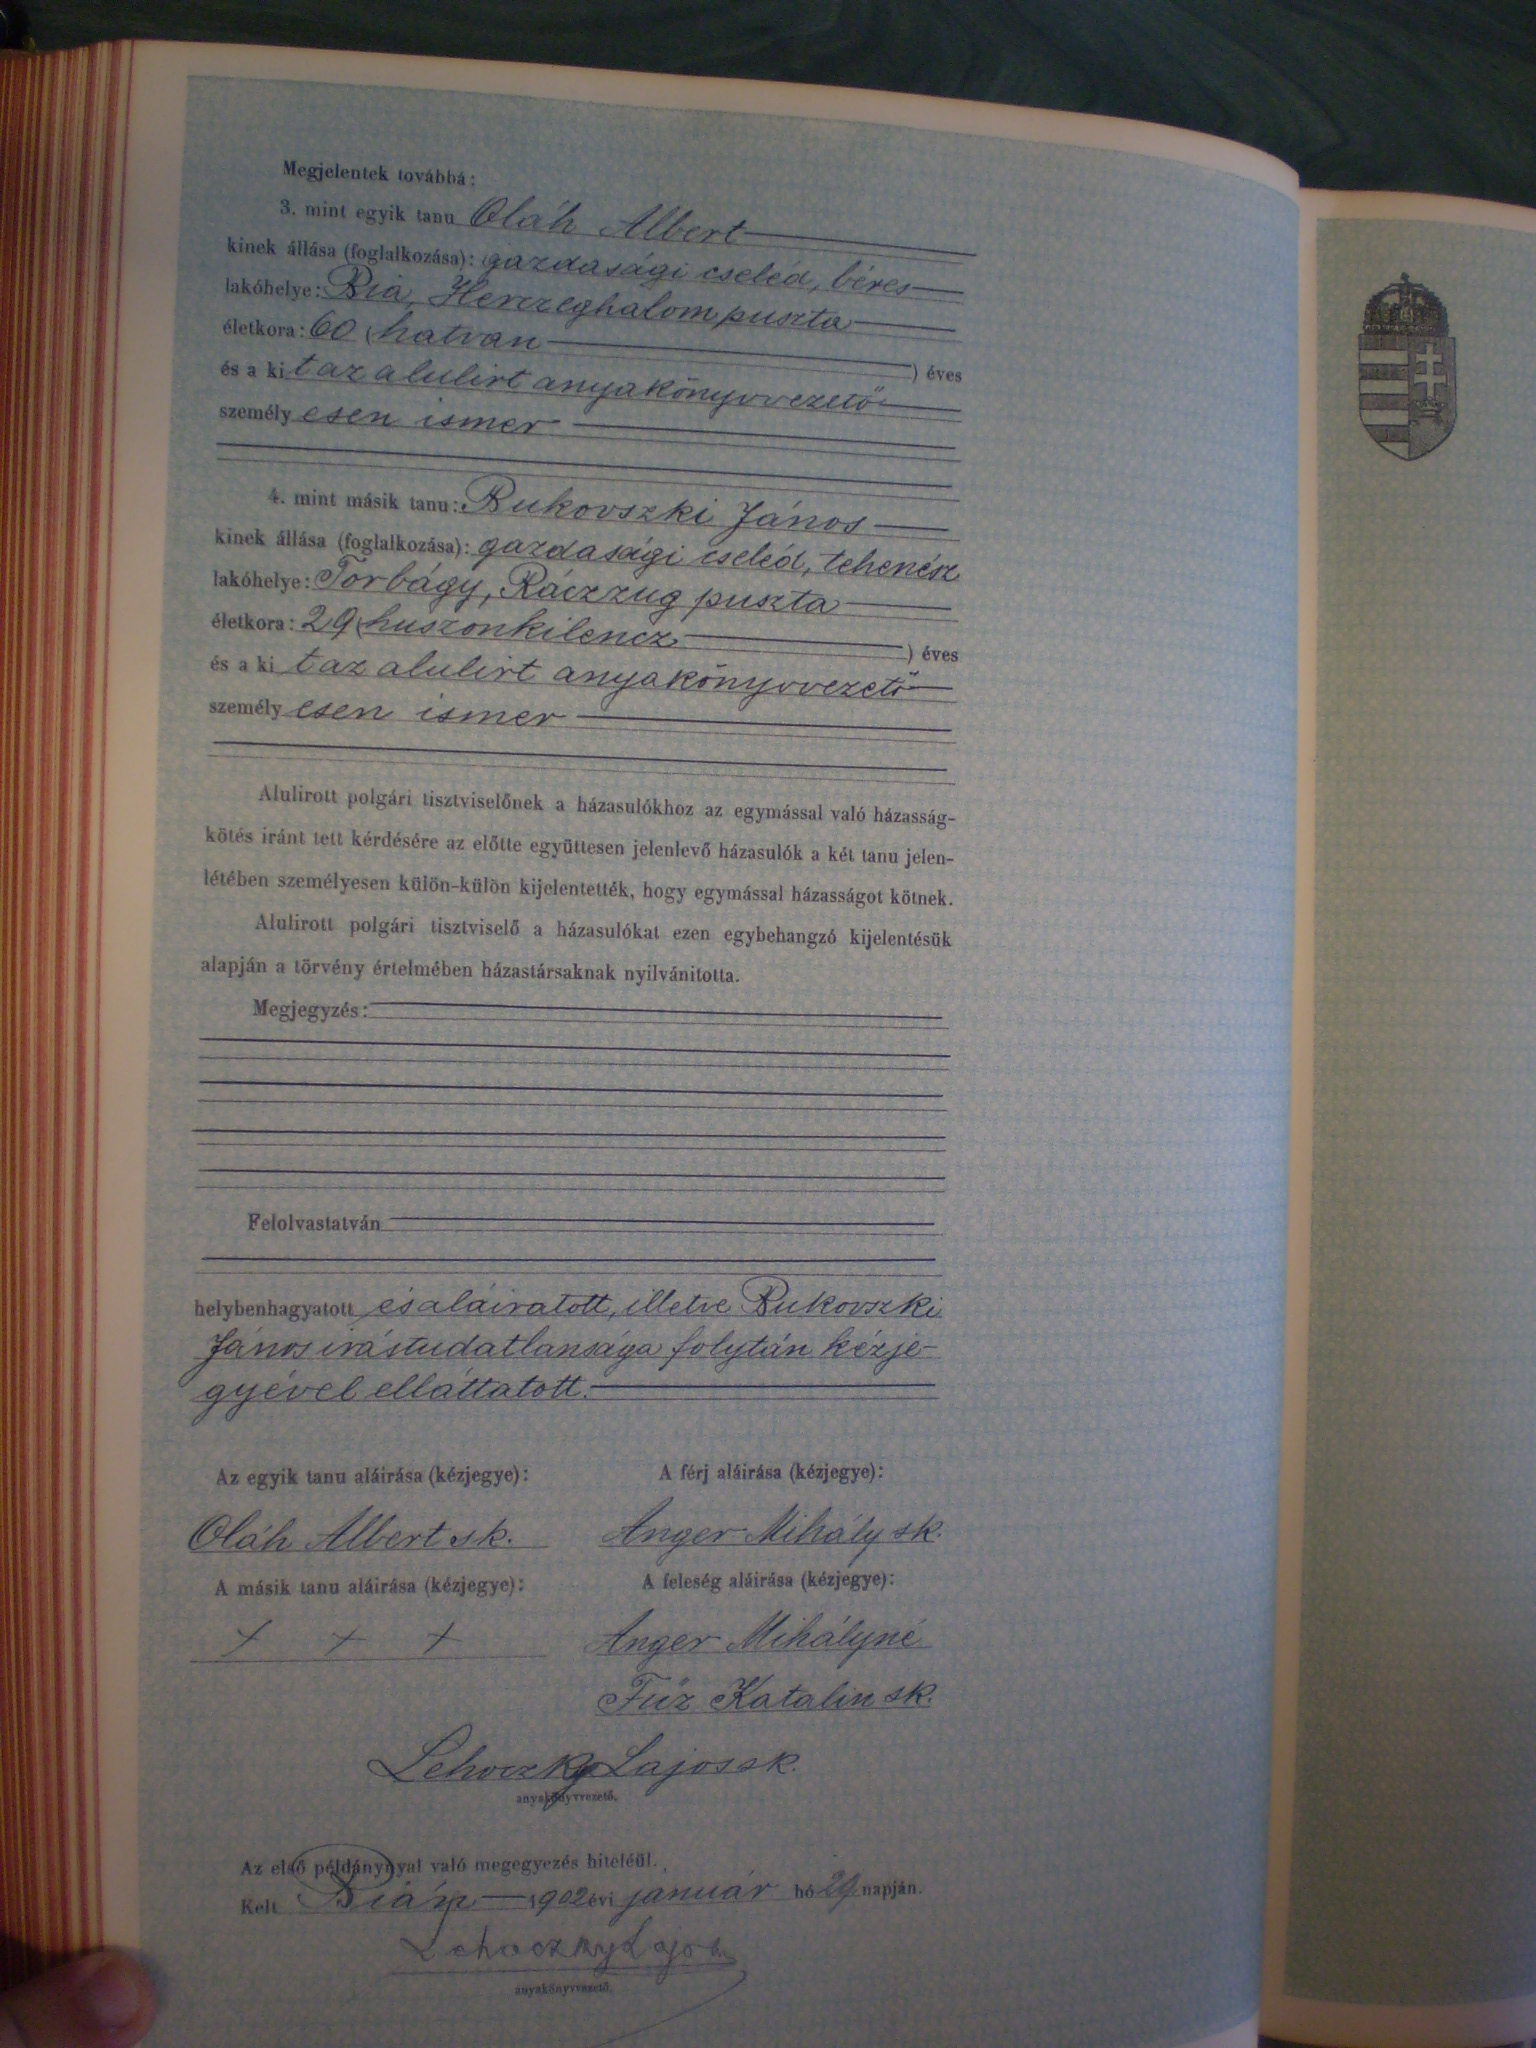 Megjelentek továbbá:
3. mint egyik tanu Oláh Albert
kinek állása (foglalkozása): gazdasági cseléd, béres
lakóhelye: Bia, Herczeghalom puszta
életkora: 60 (hatvan ) éves
és a ki t az alulirt anyakönyvvezető
személy esen ismer
4. mint másik tanu: Bukovszki János
kinek állása (foglalkozása): gazdasági cseléd, tehenész
lakóhelye: Torbágy, Ráczzug puszta
életkora: 29 (huszonkilencz ) éves
és a ki t az alulirt anyakönyvvezető
személy esen ismer
Alulirott polgári tisztviselőnek a házasulókhoz az egymással való házasság-
kötés iránt tett kérdésére az előtte együttesen jelenlevő házasulók a két tanu jelen-
létében személyesen külön-külön kijelentették, hogy egymással házasságot kötnek.
Alulirott polgári tisztviselő a házasulókat ezen egybehangzó kijelentésük
alapján a törvény értelmében házastársaknak nyilvánitotta.
Megjegyzés:
Felolvastatván
helybenhagyatott és aláiratott, illetve Bukovszki
János irástudatlansága folytán kézje-
gyével elláttatott.
Az egyik tanu aláirása (kézjegye): A férj aláirása (kézjegye):
Oláh Albert sk. Anger Mihály sk.
A másik tanu aláirása (kézjegye): A feleség aláirása (kézjegye):
+ + + Anger Mihályné
Fűz Katalin sk.
Lehoczky Lajos sk.
anyakönyvvezető.
Az első példánynyal való megegyezés hiteléül.
Kelt Bián 1902 évi január hó 29 napján.
Lehoczky Lajos
anyakönyvvezető.